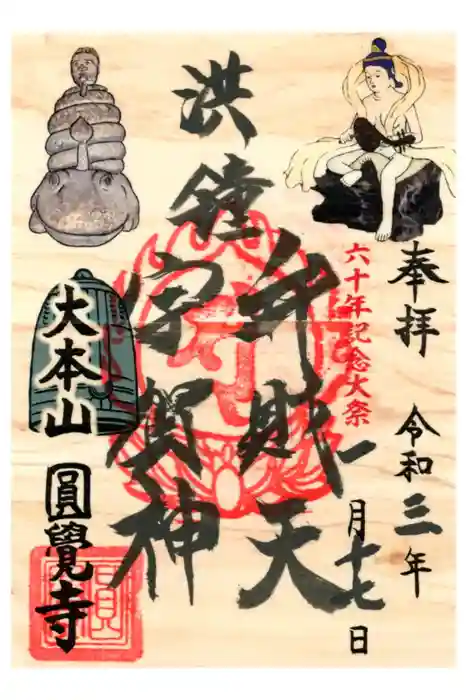 奉拝
令和三年
一月十七日
六十年記念大祭
洪鐘
弁財天
宇賀神
大本山
圓覺寺